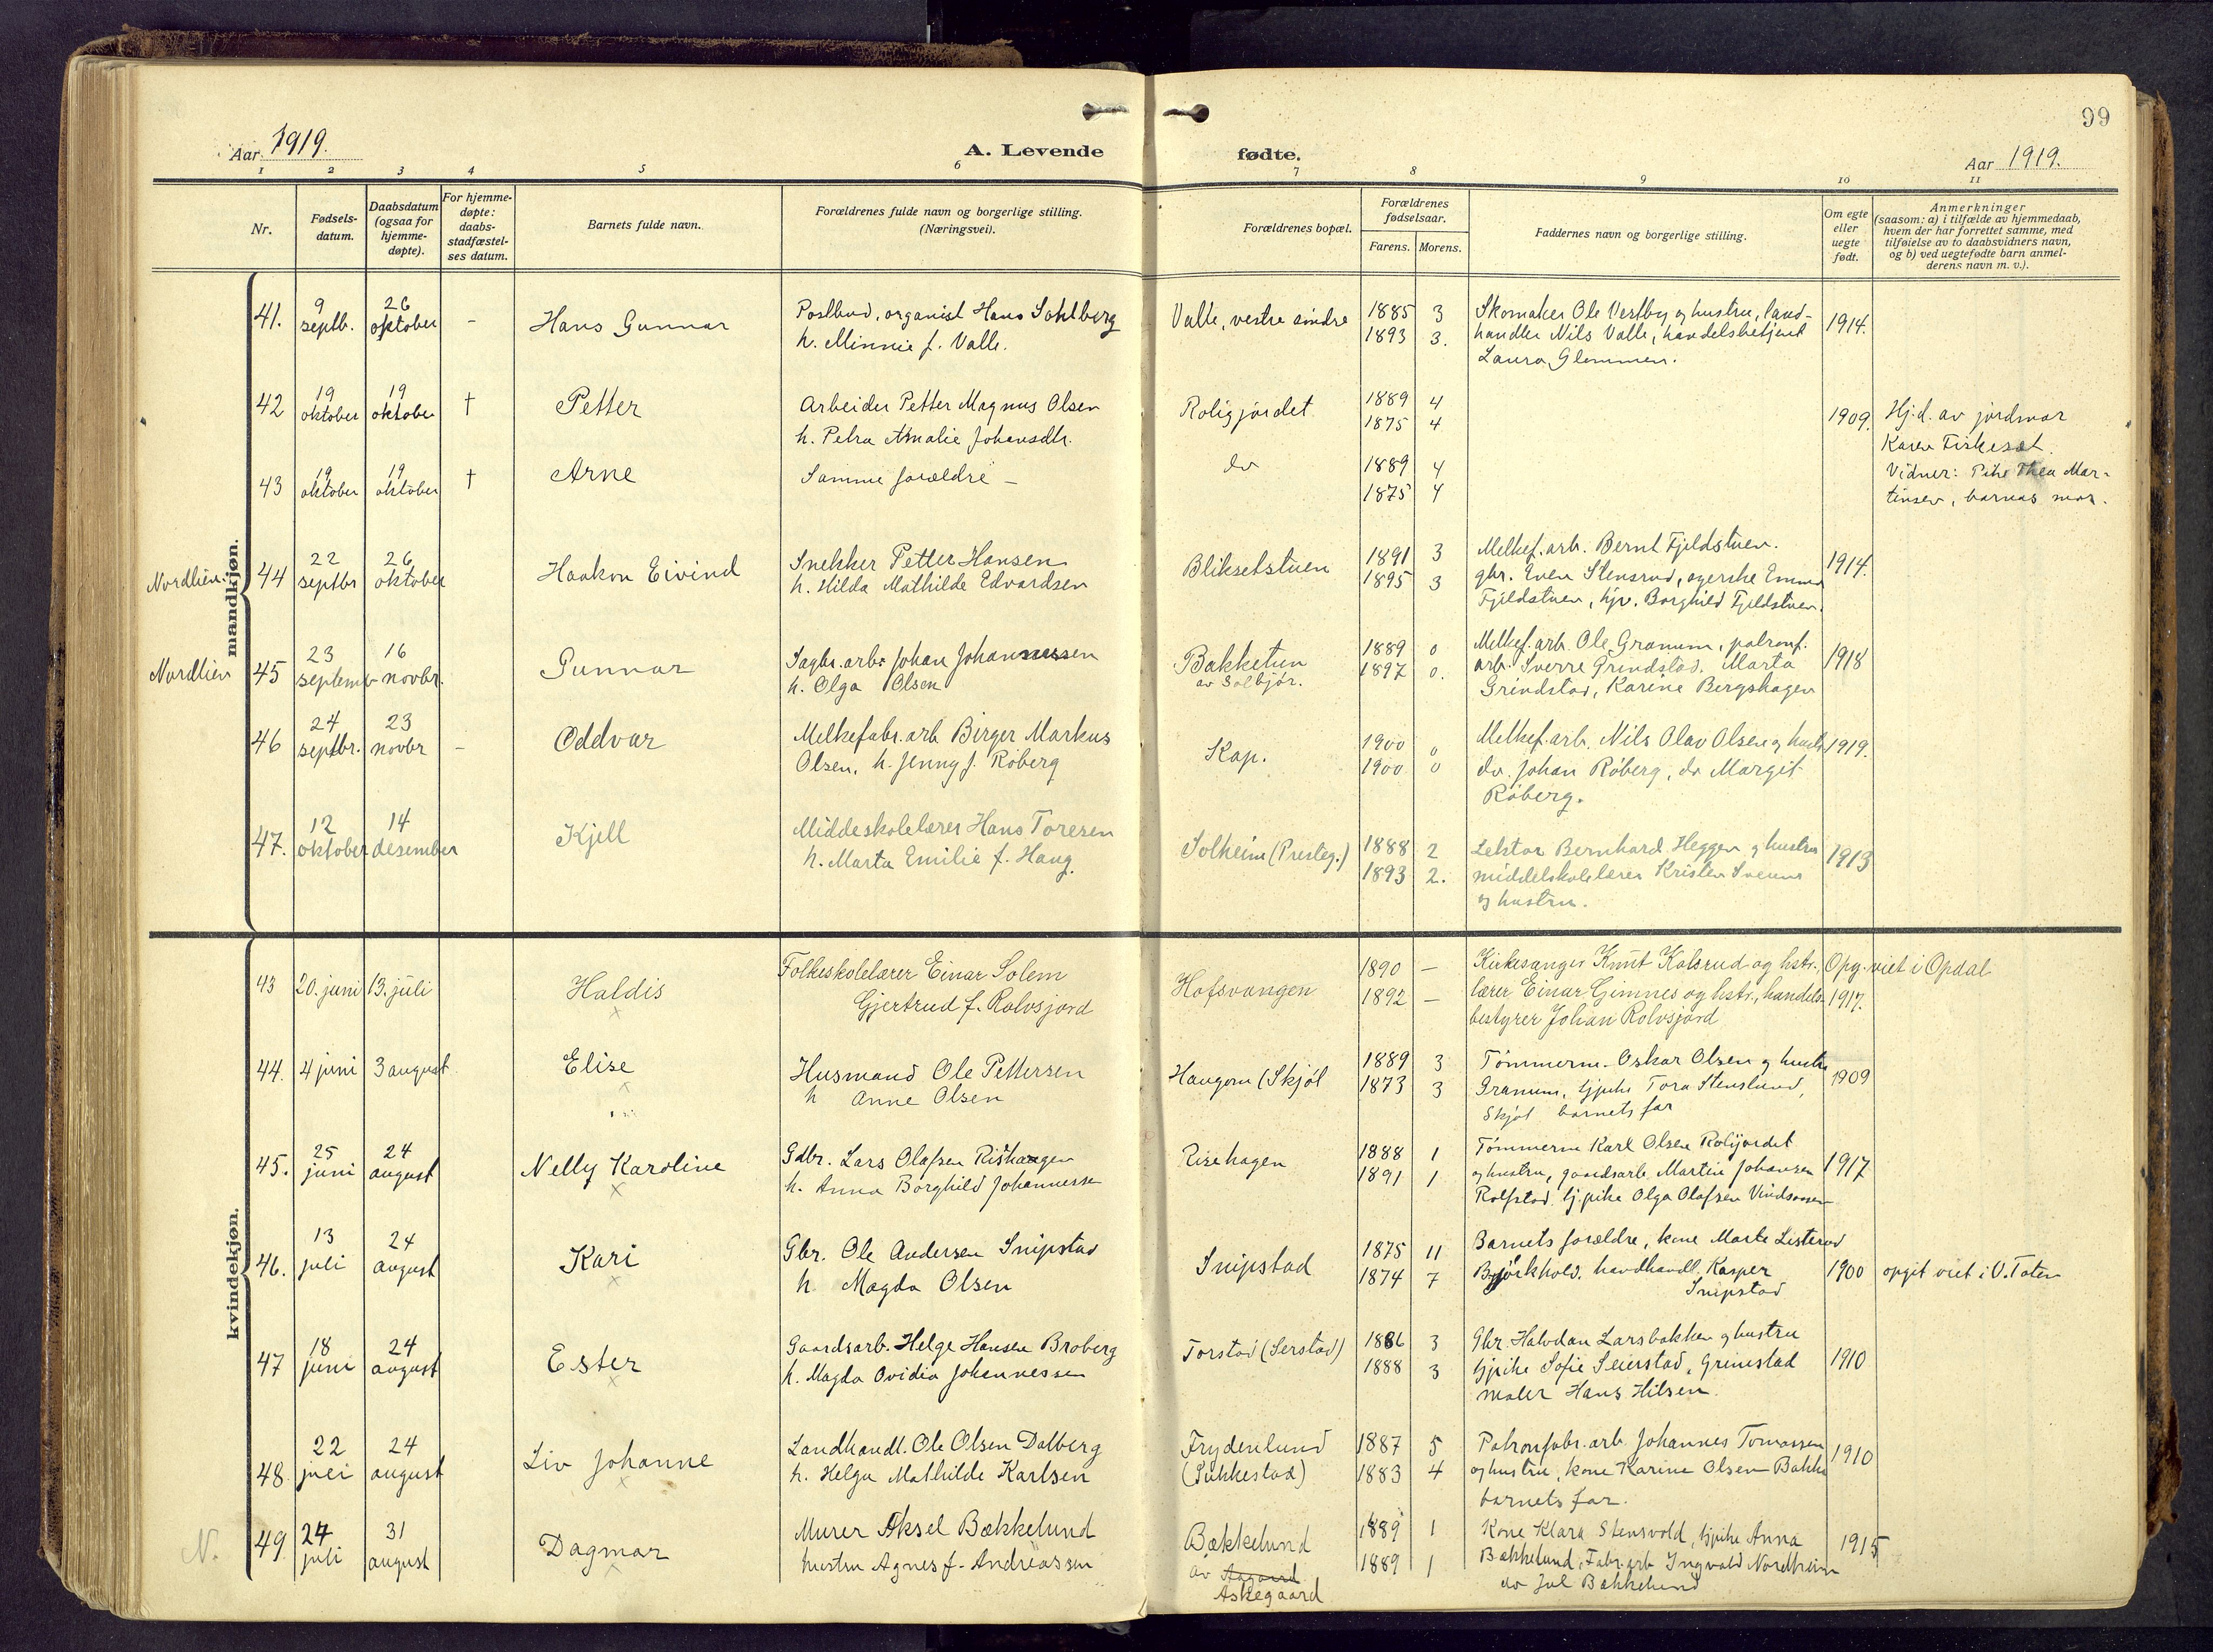 99
Aar 1919.
A. Levende
fødte.
Aar 1919.
1 2 3 4 5 6 7 8 9 10 11
Nr.
Fødsels-
datum.
Daabsdatum
(ogsaa for
hjemme-
døpte).
For hjemme-
døpte:
daabs-
stadfæstel-
ses datum.
Barnets fulde navn.
Forældrenes fulde navn og borgerlige stilling.
(Næringsvei).
Forældrenes bopæl.
Forældrenes
fødselsaar.
Farens. Morens.
Faddernes navn og borgerlige stilling.
Om egte
eller
uegte
født.
Anmerkninger
(saasom: a) i tilfælde av hjemmedaab,
hvem der har forrettet samme, med
tilføielse av to daabsvidners navn,
og b) ved uegtefødte barn anmel-
derens navn m. v.).
mandkjøn.
41.
9
septb.
26
oktober
-
Hans Gunnar
Postbud, organist Hans Sohlberg
h. Minnie f. Valle.
Valle, vestre søndre
1885 3
1893 3.
Skomaker Ole Vestby og hustru, land-
handler Nils Valle, handelsbetjent
Laura Glemmen.
1914.
42
19
oktober
19
oktober
†
Petter
Arbeider Petter Magnus Olsen
h. Petra Amalie Johansdtr.
Roligjordet
1889 4
1875 4
1909.
Hj.d. av jordmor
Karen Fiskeset.
43
19
oktober
19
oktober
†
Arne
Samme forældre -
do
1889 4
1875 4
Vidner: Pike Thea Mar-
tinsen, barnas mor.
Nordlien.
44
22
septbr
26
oktober
Haakon Eivind
Snekker Petter Hansen
h. Hilda Mathilde Edvardsen
Blikset­stuen
1891 3
1895 3
Melkef.arb. Bernt Fjeldstuen.
gbr. Even Stensrud, syerske Emma
Fjeldstuen, hjv. Borghild Fjeldstuen.
1914.
Nordlien
45
23
septemb
16
novbr.
Gunnar
Sagbr.arb. Johan Johannessen
h. Olga Olsen
Bakketun
av Solbjør.
1889 0
1897 0.
Melkef.arb. Ole Granum, patronf.
arb. Sverre Grindstad. Marta
Grindstad, Karine Bergshagen
1918
46
24
septbr.
23
novbr
-
Oddvar
Melkefabr.arb. Birger Markus
Olsen, h. Jenny f. Røberg
Kap.
1900 0
1900 0
Melkef.arb. Nils Olav Olsen og hustr
do. Johan Røberg, do Margit
Røberg.
1919.
47.
12
oktober
14
desember
Kjell
Middeskolelærer Hans Toresen
h. Marta Emilie f. Haug.
Solheim (Presteg.)
1888 2
1893 2.
Lektor Bernhard Heggen og hustru
middelskolelærer Kristen
og hustru.
1913
kvindekjøn.
43
20. juni
13. juli
Haldis
×
Folkeskolelærer Einar Solem
Gjertrud f. Rolvsjord
Hofsvangen
1890 -
1892 -
Kirkesanger Knut Kolsrud og hstr.,
lærer Einar Gimnes og hstr., handels-
bestyrer Johan Rolvsjord
Opg. viet i Opdal
1917.
44.
4 juni
3 august
Elise
×
Husmand Ole Pettersen
h Anne Olsen
Haugom (Skjøl
1889 3
1873 3
Tømmerm. Oskar Olsen og hustru
Granum, tj.pike Tora Stenslund,
Skjøl barnets far
1909
45.
25
juni
24
august
Nelly Karoline
×
Gdbr. Lars Olafsen Rishaugen
h. Anna Borghild Johannessen
Risehagen
1888 1
1891 1
Tømmerm Karl Olsen Rolijordet
og hustru, gaardsarb. Martin Johansen
Rolfstad. tj.pike Olga Olafsen
1917
46.
13
juli
24
august
Kari
×
Gbr. Ole Andersen Snipstad
h. Magda Olsen
Snipstad
1875 11
1874 7
Barnets forældre, kone Marte Listerud
Bjørkhold. Kasper
Snipstad
1900
opgit viet i V. Toten
47
18
juni
24
august
Ester
×
Gaardsarb. Helge Hansen Broberg
h. Magda Ovidia Johannessen
Torstad (Serstad)
1886 3
1888 3
Gbr. Halvdan Larsbakken og hustru
tj.pike Sofie Seierstad, Grimstad
maler Hans Hilsen.
1910
48.
22
juli
24
august
Liv Johanne
×
Landhandl. Ole Olsen Dalberg
h. Helga Mathilde Karlsen
Frydenlund
(Sukkestad)
1887 5
1883 4
Patronfabr.arb. Johannes Tomassen
og hustru, kone Karine Olsen Bakke
barnets far.
1910
N.
49.
27
juli
31
august
Dagmar
×
Murer Aksel Bækkelund
hustru Agnes f. Andreassen
Bækkelund
av Aagaard
Askegaard
1889 1
1889 1
Kone Klara Stensvold, tj.pike Anna
Bækkelund, Fabr.arb Ingvald Nordheim
do Jul Bækkelund
1915